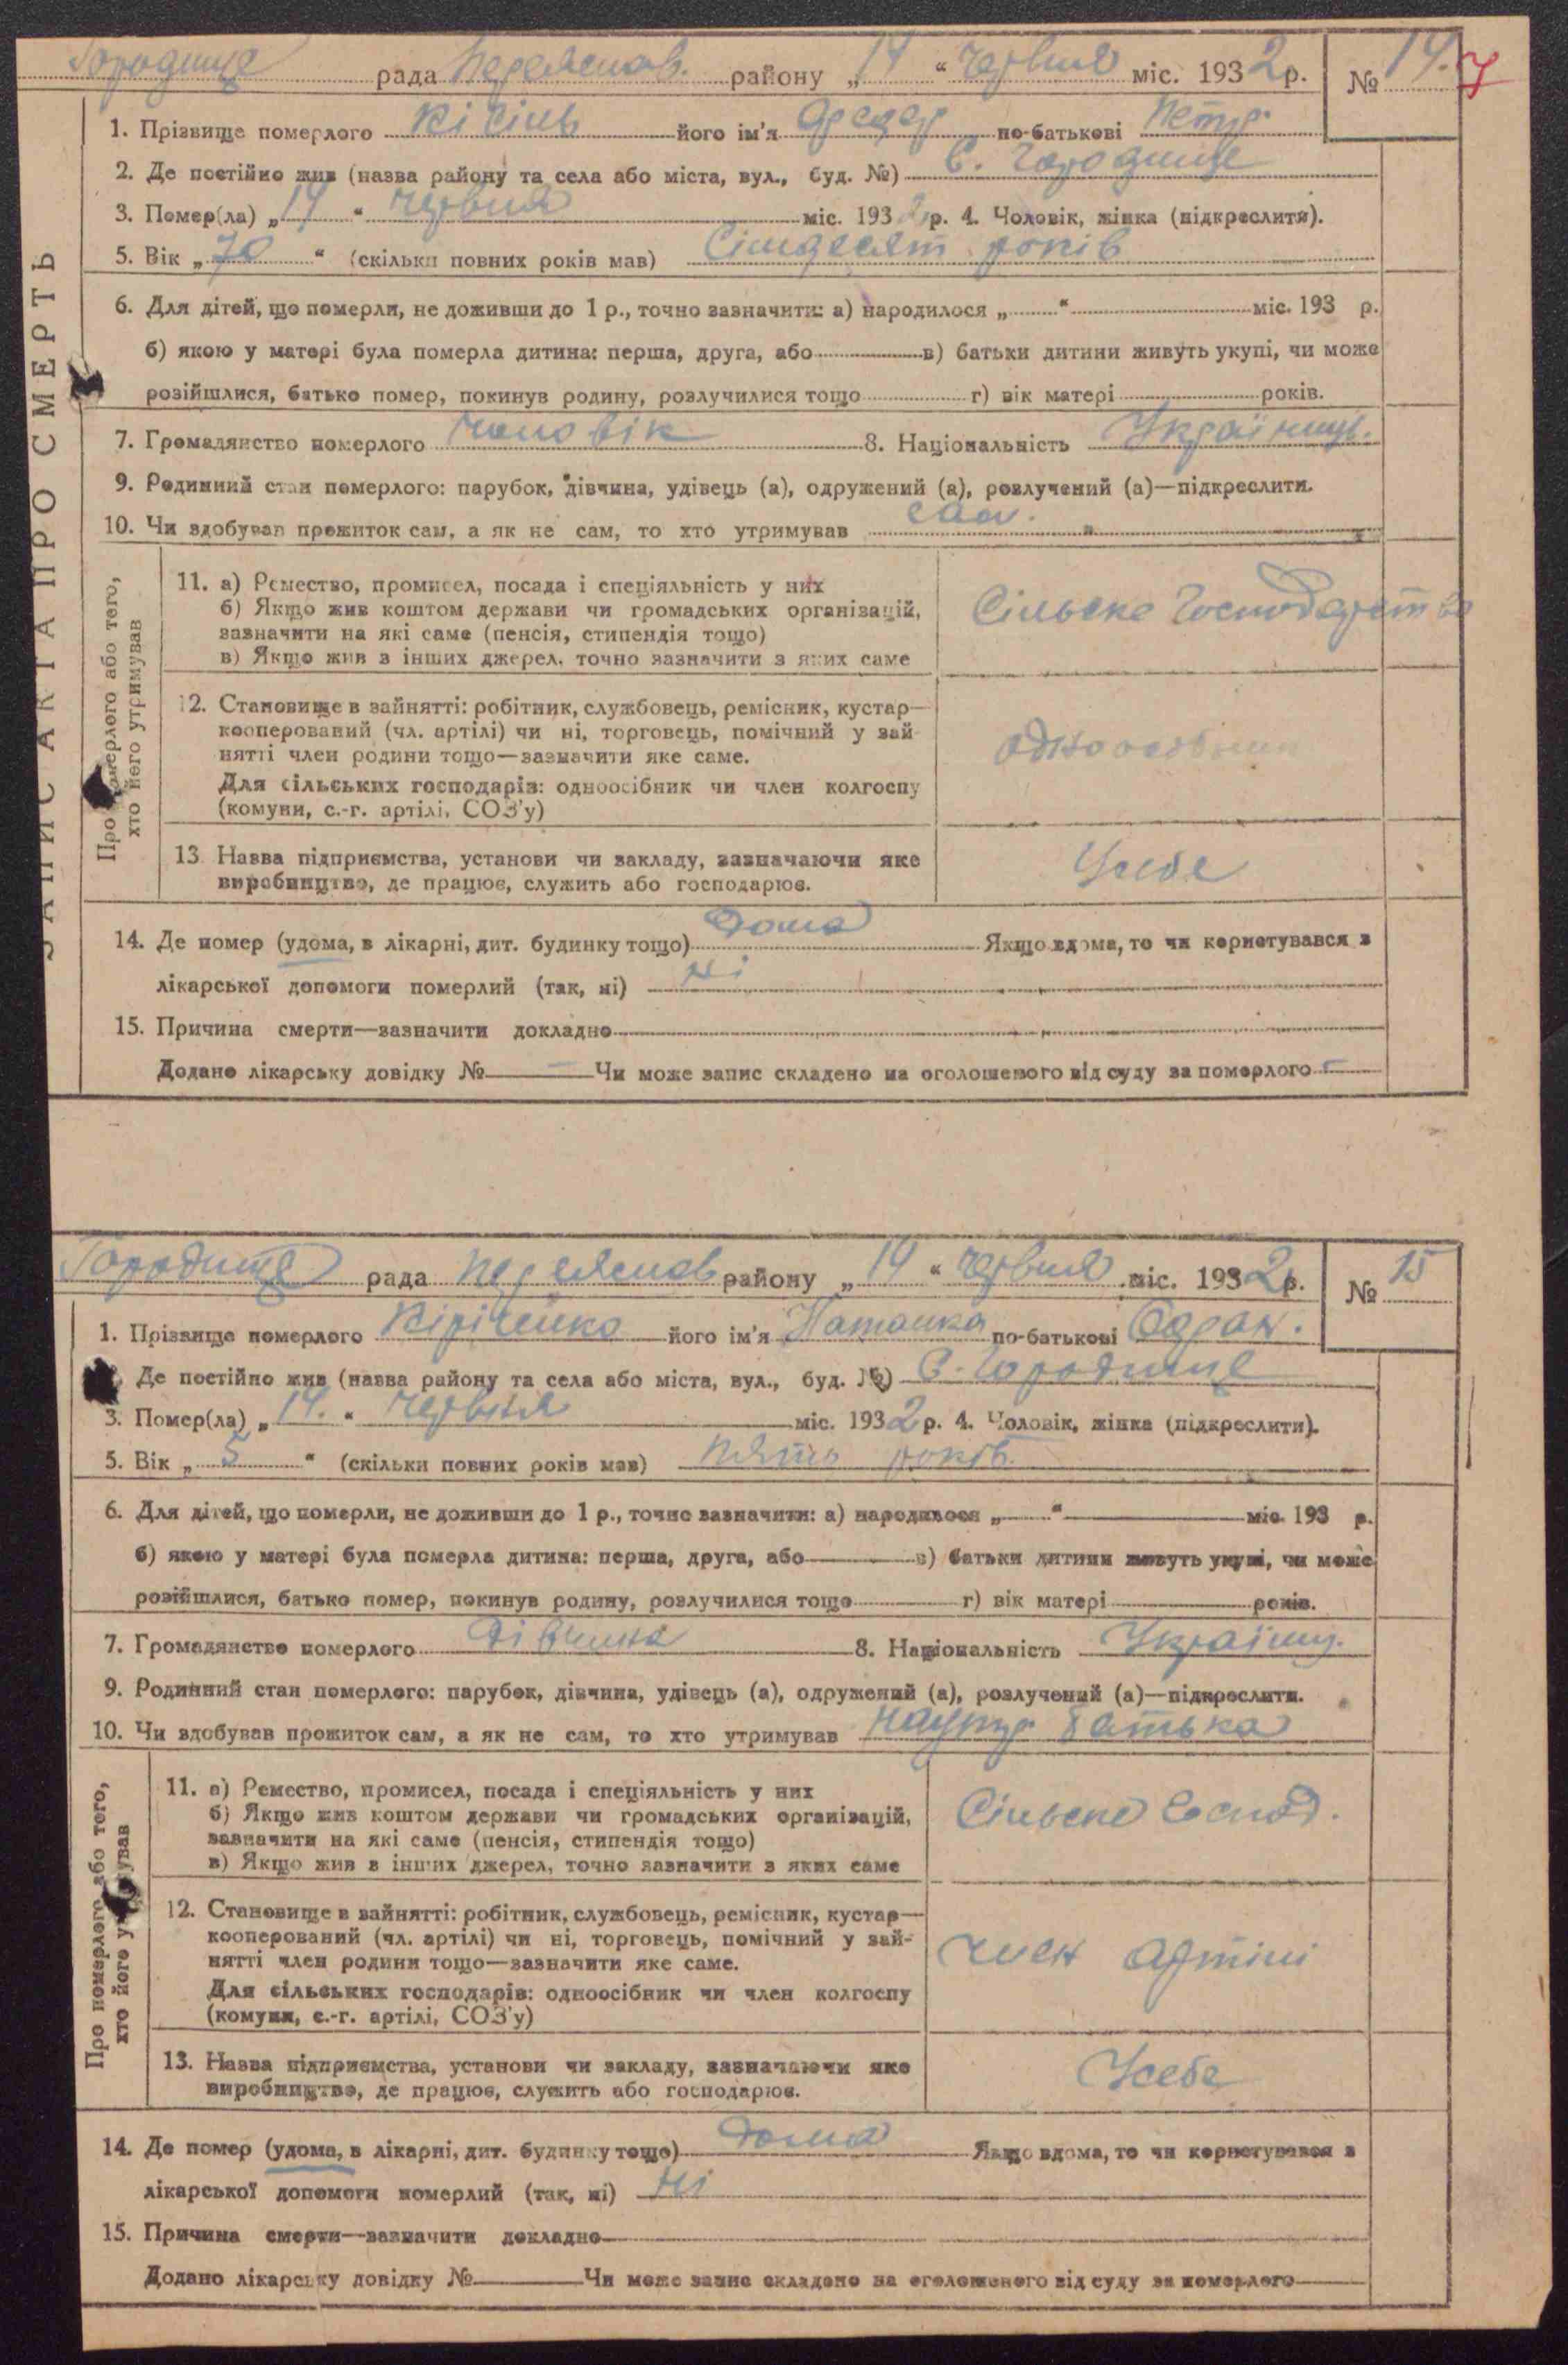 Городище рада Переяслов. району „ 14 “ Червня міс. 1932 р. № 14. 7
ЗАПИС АКТА ПРО СМЕРТЬ
1. Прізвище померлого Кісіль його ім'я Федер по-батькові Петр.
2. Де постійно жив (назва району та села або міста, вул., буд. №) С. Городище
3. Помер(ла) „ 14 “ Червня міс. 1932 р. 4. Чоловік, жінка (підкреслити).
5. Вік „ 70 “ (скільки повних років мав) Сімдесят років
6. Для дітей, що померли, не доживши до 1 р., точно зазначити: а) народилося „ “ міс. 193 р.
б) якою у матері була померла дитина: перша, друга, або в) батьки дитини живуть укупі, чи може
розійшлися, батько помер, покинув родину, розлучилися тощо г) вік матері років.
7. Громадянство померлого Чоловік 8. Національність Українц.
9. Родинний стан померлого: парубок, дівчина, удівець (а), одружений (а), розлучений (а)—підкреслити.
10. Чи здобував прожиток сам, а як не сам, то хто утримував сам.
Про померлого або того, хто його утримував
11. а) Ремество, промисел, посада і спеціяльність у них
б) Якщо жив коштом держави чи громадських організацій,
зазначити на які саме (пенсія, стипендія тощо)
в) Якщо жив з інших джерел, точно зазначити з яких саме
Сільське Господарство
12. Становище в зайнятті: робітник, службовець, ремісник, кустар—
кооперований (чл. артілі) чи ні, торговець, помічний у зай-
нятті член родини тощо—зазначити яке саме.
Для сільських господарів: одноосібник чи член колгоспу
(комуни, с.-г. артілі, СОЗ'у)
одноособник
13 Назва підприємства, установи чи закладу, зазначаючи яке
виробництво, де працює, служить або господарює.
Усебе
14. Де помер (удома, в лікарні, дит. будинку тощо) Дома Якщо вдома, то чи користувався з
лікарської допомоги померлий (так, ні) ні
15. Причина смерти—зазначити докладно
Додано лікарську довідку № — Чи може запис складено на оголошеного від суду за померлого —
Городище рада Переяслов району „ 14 “ Червня міс. 1932 р. № 15
1. Прізвище померлого Кіріченко його ім'я Наталка по-батькові Садрон.
Де постійно жив (назва району та села або міста, вул., буд. №) С. Городище
3. Помер(ла) „ 14. “ Червня міс. 1932 р. 4. Чоловік, жінка (підкреслити).
5. Вік „ 5 “ (скільки повних років мав) пять років.
6. Для дітей, що померли, не доживши до 1 р., точно зазначити: а) народилося „ “ міс. 193 р.
б) якою у матері була померла дитина: перша, друга, або в) батьки дитини живуть укупі, чи може
розійшлися, батько помер, покинув родину, розлучилися тощо г) вік матері років.
7. Громадянство померлого Дівчина 8. Національність Українц.
9. Родинний стан померлого: парубок, дівчина, удівець (а), одружений (а), розлучений (а)—підкреслити.
10. Чи здобував прожиток сам, а як не сам, то хто утримував батька
Про померлого або того, хто його утримував
11. а) Ремество, промисел, посада і спеціяльність у них
б) Якщо жив коштом держави чи громадських організацій,
зазначити на які саме (пенсія, стипендія тощо)
в) Якщо жив в інших джерел, точно зазначити з яких саме
Сільске Господ.
12. Становище в зайнятті: робітник, службовець, ремісник, кустар—
кооперований (чл. артілі) чи ні, торговець, помічний у зай-
нятті член родини тощо—зазначити яке саме.
Для сільських господарів: одноосібник чи член колгоспу
(комуни, с.-г. артілі, СОЗ'у)
член Артілі
13. Назва підприємства, установи чи закладу, зазначаючи яке
виробництво, де працює, служить або господарює.
Усебе
14. Де помер (удома, в лікарні, дит. будинку тощо) Дома Якщо вдома, то чи користувався з
лікарської допомоги померлий (так, ні) ні
15. Причина смерти—зазначити докладно
Додано лікарську довідку № Чи може запис складено на оголошеного від суду за померлого